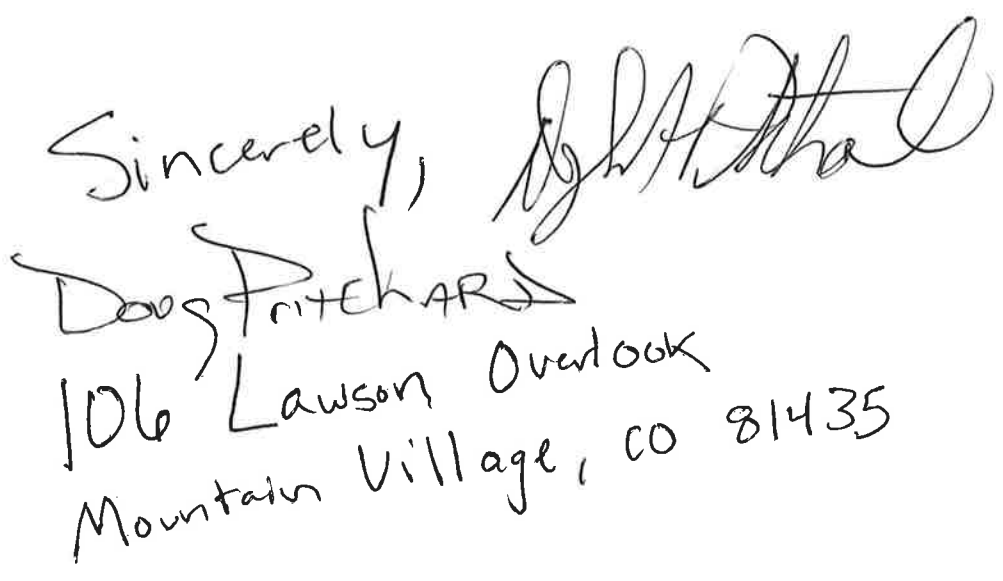 Sincerely,
Doug Pritchard
106 Lawson Overlook
Mountain Village, CO 81435